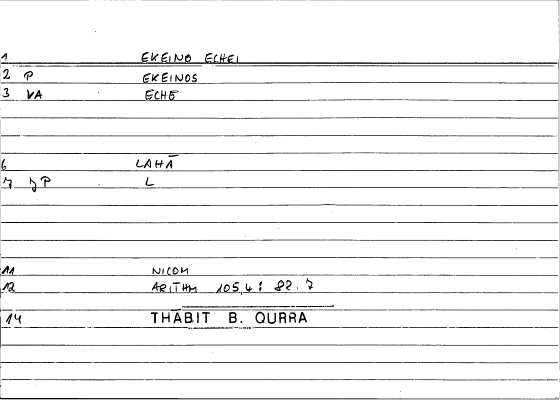 1 EKEINO ECHEI
2 P EKEINOS
3 VA ECHŌ
6 LAHĀ
7 JP L
11 NICOM
12 ARITHM 105,4 : 82.7
14 THĀBIT B. QURRA